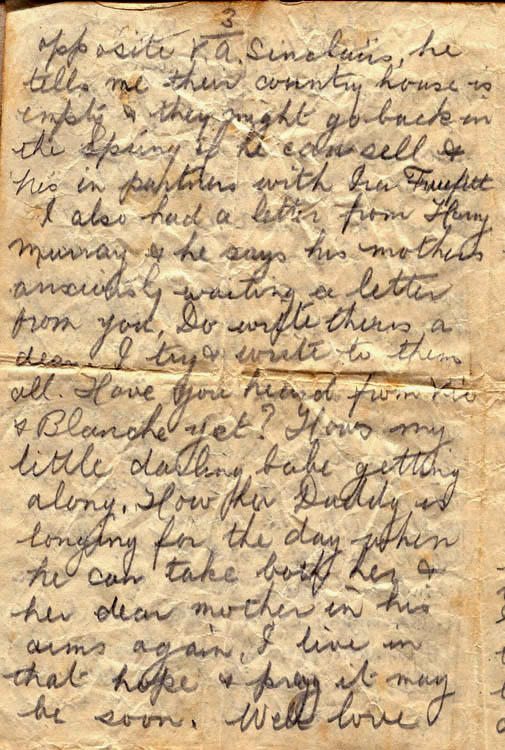 3
opposite V.A. Sinclairs, he
tells me their country house is
empty & they might go back in
the Spring if he can sell &
his in partners with Ira
I also had a letter from Harry
Murray & he says his mothers
anxiously waiting a letter
from you, Do write theres a
dear. I try & write to them
all. Have you heard from Vic
& Blanche yet? Hows my
little darling babe getting
along, How her Daddy is
longing for the day when
he can take both her &
her dear mother in his
arms again, I live in
that hope & pray it may
be soon. Well love